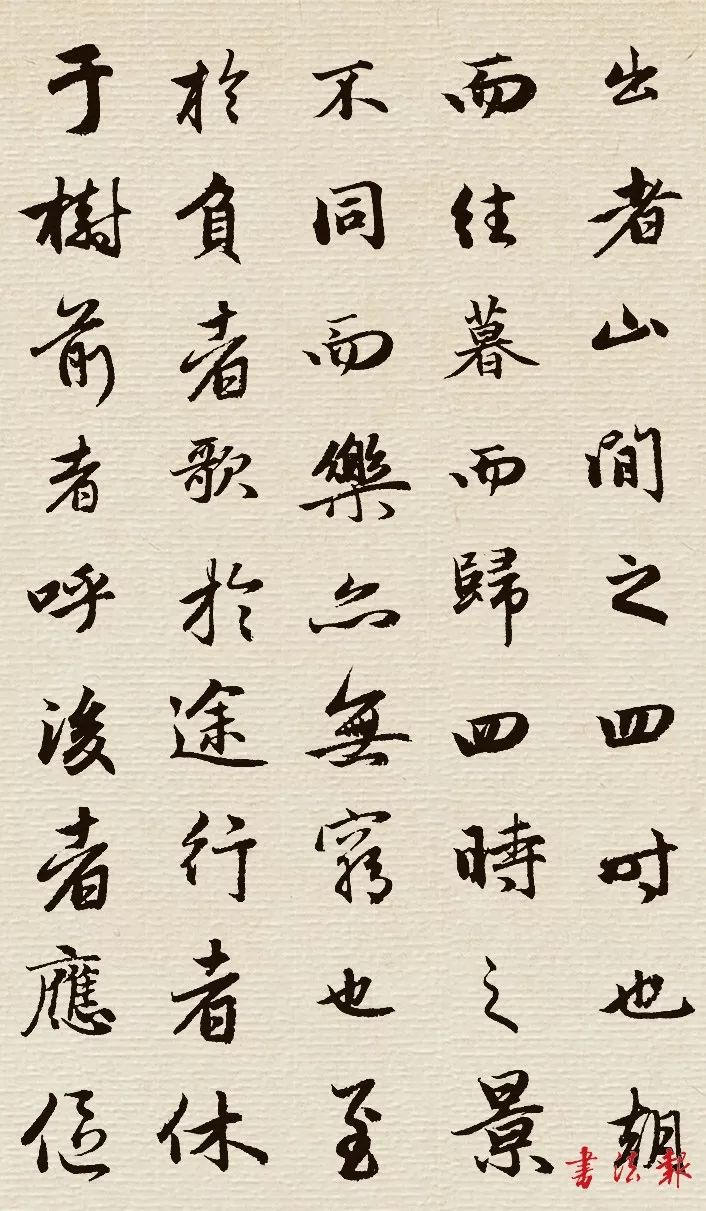 出者山間之四时也朝
而往暮而歸四時之景
不同而樂亦無窮也至
於負者歌於途行者休
于樹前者呼後者應傴
書法報